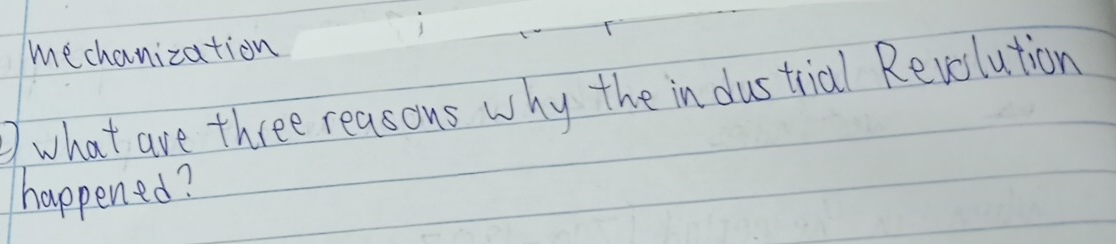 mechanization
2) what are three reasons why the industrial Revolution
happened?